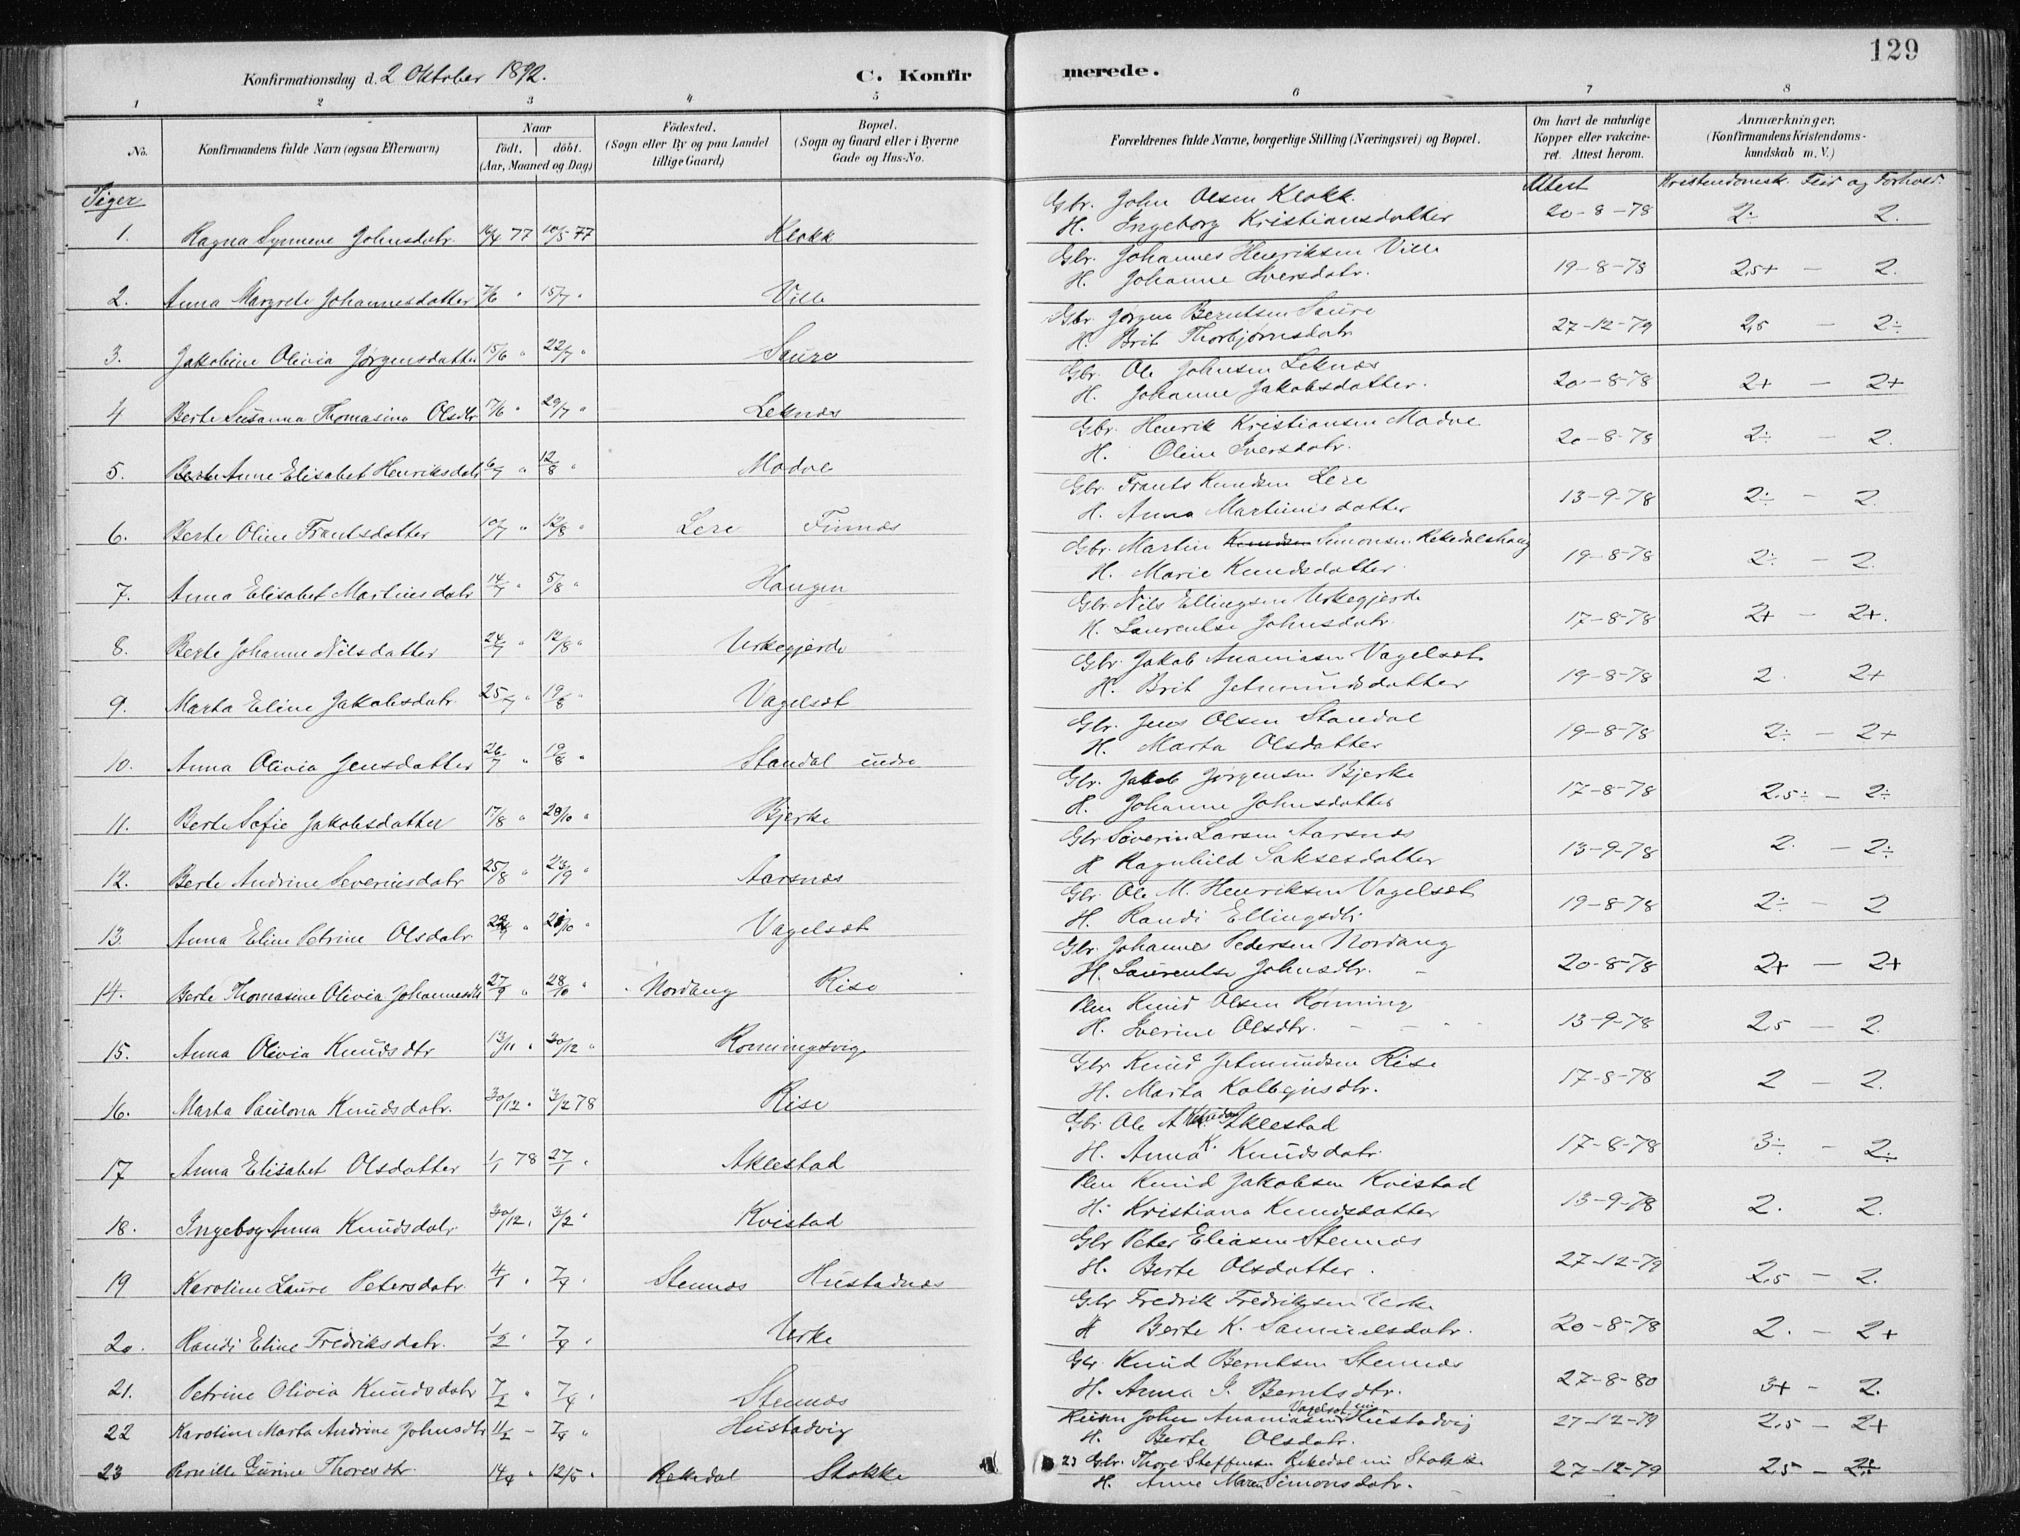 129
Konfirmationsdag d. 2 Oktober 1892.
C. Konfirmerede.
1 2 3 4 5 6 7 8
No.
Konfirmandens fulde Navn (ogsaa Efternavn)
Naar
født. døbt.
(Aar, Maaned og Dag)
Fødested.
(Sogn eller By og paa Landet tillige Gaard)
Bopæl.
(Sogn og Gaard eller i Byerne Gade og Hus-No.
Forældrenes fulde Navne, borgerlige Stilling (Næringsvei) og Bopæl.
Om havt de naturlige Kopper eller vakcineret. Attest herom.
Anmærkninger.
(Konfirmandens Kristendomskundskab m. V.)
Piger
Attest Kristendomsk. Flid og Forhold.
1. Ragna Synneve Johnsdatr. 16/4 77 10/5 77 Klokk Gbr. John Olsen Klokk. H. Ingeborg Kristiansdatter 20-8-78 2÷ 2.
2. Anna Margrete Johannesdatter 7/6 " 15/7 " Ville Gbr. Johannes Henriksen Ville H. Johanne Iversdatr. 19-8-78 2,5+ - 2.
3. Jakobine Olivia Jørgensdatter 15/6 " 22/7 " Saure Gbr Jørgen Berntsen Saure H. Brit Thorbjørnsdatr 27-12-79 2,5 - 2÷
4 Berte Susanna Thomasine Olsdtr 17/6 " 29/7 " Leknæs Gbr. Ole Johnsen Leknæs H. Johanne Jakobsdatter. 20-8-78 2+ - 2+
5. Berte Anne Elisabet Henriksdatr 6/7 " 12/8 " Modve Gbr. Henrik Kristiansen Modve H. Oline Iversdatr. 20-8-78 2÷ - 2.
6. Berte Oline Frantsdatter 10/7 " 12/8 " Lere Finnæs Gbr. Frants Knudsen Lere H. Anna Martinusdatter 13-9-78 2÷ - 2.
7. Anna Elisabet Martinsdatr 14/7 " 5/8 " Haugen Gbr. Martin Knudsen Simonsen Rekedalshaug H. Marie Knudsdatter. 19-8-78 2÷ - 2.
8. Berte Johanne Nilsdatter 24/7 " 12/8 " Urkegjerde Gbr. Nils Ellingsen Urkegjerde H. Laurentse Johnsdatr. 17-8-78 2+ - 2+.
9. Marta Eline Jakobsdatr 25/7 " 19/8 " Vagelsæt Gbr. Jakob Ananiasen Vagelsæt H. Brit Jetmundsdatter 19-8-78 2. 2+
10. Anna Olivia Jensdatter 26/7 " 19/8 " Standal indre Gbr. Jens Olsen Standal H. Marta Olsdatter 19-8-78 2÷ - 2+
11. Berte Sofie Jakobsdatter 17/8 " 28/10 " Bjerke Gbr. Jakob Jørgensen Bjerke H. Johanne Johnsdatter 17-8-78 2.5÷ - 2÷
12. Berte Andrine Severinsdatr 25/8 " 23/9 " Aarsnæs Gbr Søverin Larsen Aarsnæs H Ragnhild Saksesdatter 13-9-78 2. - 2÷
13. Anna Eline Petrine Olsdatr " 21/10 " Vagelsæt Gbr. Ole M. Henriksen Vagelsæt H. Randi Ellingsdtr 19-8-78 2÷ - 2
14. Berte Thomasine Olivia Johannesdtr 27/9 " 28/10 " Nordang Rise Gbr. Johannes Pedersen Nordang H. Laurentse Johnsdtr. 20-8-78 2+ - 2+
15. Anna Olivia Knudsdtr 13/11 " 30/12 " Rønningsvig Knud Olsen Rønning H. Iverine Olsdtr. 13-9-78 2,5 - 2.
16. Marta Paulona Knudsdatr. 30/12 " 3/2 78 Rise Gbr Knud Jetmundsen Rise H. Marta Kolbeinsdtr. 17-8-78 2 - 2.
17 Anna Elisabet Olsdatter 1/1 78 27/1 " Aklestad Gbr. Ole A Knudsen Aklestad H. Anna K. Knudsdatr. 17-8-78 3÷ - 2÷
18. Ingeborg Anna Knudsdatr 30/12 " 3/2 " Kvistad Knud Jakobsen Kvistad H. Kristiana Knudsdatter 13-9-78 2. 2.
19 Karoline Laure Petersdatr 4/1 " 7/4 " Stennæs Hustadnæs Gbr Peter Eliasen Stennæs H. Berte Olsdatter. 27-12-79 2,5 - 2.
20. Randi Eline Fredriksdatr. 1/2 " 7/4 " Urke Gbr Fredrik Fredriksen Urke H Berte K. Samuelsdatr. 20-8-78 2. - 2+
21. Petrine Olivia Knudsdatr 7/2 " 7/4 " Stennæs Gbr. Knud Berntsen Stennæs H. Anna G. Berntsdtr. 27-8-80 3+ - 2.
22 Karoline Marta Andrine Johnsdtr 11/2 - 7/4 " Hustadvig John Ananiasen Vagelsæt nu Hustadvig H. Berte Olsdatr. 27-12-79 2.5 - 2+
23 Pernille Gurine Thoresdtr. 14/4 " 12/5 " Rekedal Stokke 23 Gbr. Thore Steffensen Rekedal nu Stokke H. Anne Maren Simonsdatr. 27-12-79 2.5 -